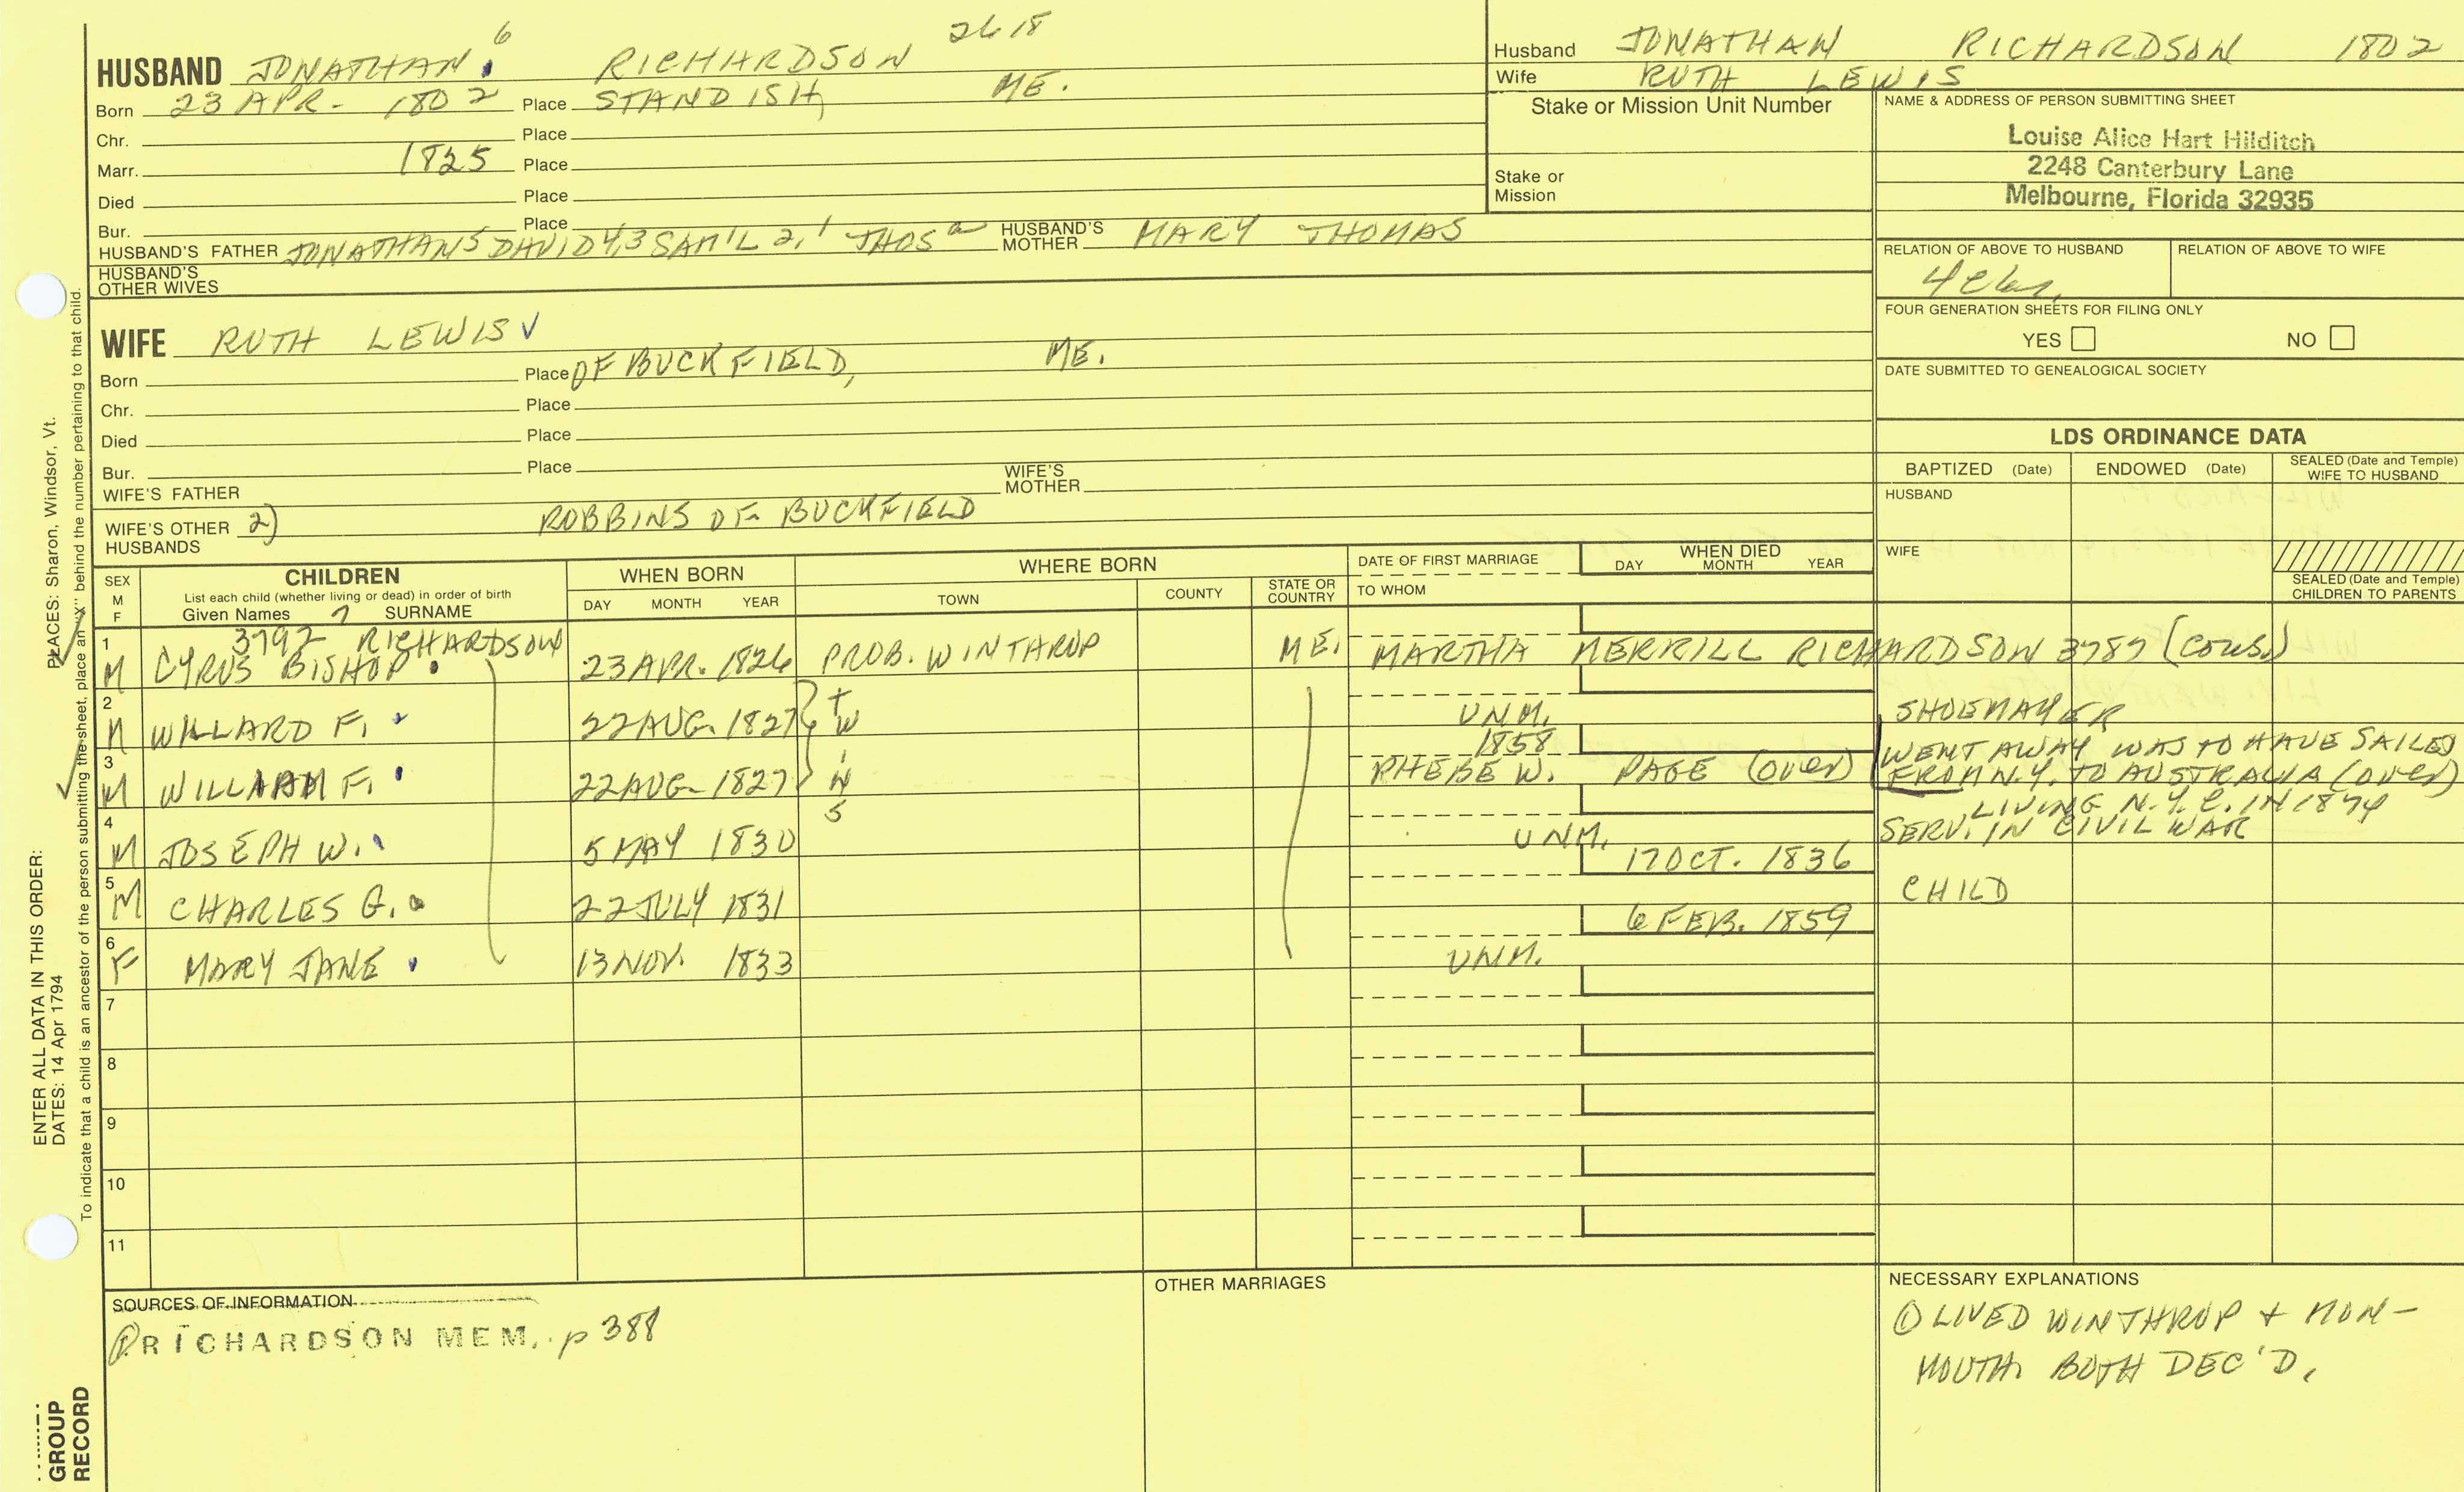 HUSBAND JONATHAN 6 RICHARDSON 2618
Born 23 APR. 1802 Place STANDISH, ME.
Chr. Place
Marr. 1825 Place
Died Place
Bur. Place
HUSBAND'S FATHER JONATHAN 5 DAVID 4,3 SAM'L 2, 1 THOS HUSBAND'S MOTHER MARY THOMAS
HUSBAND'S OTHER WIVES
Husband JONATHAN RICHARDSON 1802
Wife RUTH LEWIS
Stake or Mission Unit Number
Stake or Mission
NAME & ADDRESS OF PERSON SUBMITTING SHEET
Louise Alice Hart Hilditch
2248 Canterbury Lane
Melbourne, Florida 32935
RELATION OF ABOVE TO HUSBAND RELATION OF ABOVE TO WIFE
FOUR GENERATION SHEETS FOR FILING ONLY
YES NO
DATE SUBMITTED TO GENEALOGICAL SOCIETY
WIFE RUTH LEWIS ✓
Born Place OF BUCKFIELD, ME.
Chr. Place
Died Place
Bur. Place
WIFE'S FATHER WIFE'S MOTHER
WIFE'S OTHER HUSBANDS 2) ROBBINS OF BUCKFIELD
LDS ORDINANCE DATA
BAPTIZED (Date) ENDOWED (Date) SEALED (Date and Temple) WIFE TO HUSBAND
HUSBAND
WIFE
SEALED (Date and Temple) CHILDREN TO PARENTS
SEX M F
CHILDREN
List each child (whether living or dead) in order of birth
Given Names 7 SURNAME
WHEN BORN
DAY MONTH YEAR
WHERE BORN
TOWN COUNTY STATE OR COUNTRY
DATE OF FIRST MARRIAGE
TO WHOM
WHEN DIED
DAY MONTH YEAR
1 3792 RICHARDSON
M CYRUS BISHOP 23 APR. 1826 PROB. WINTHROP ME. MARTHA MERRILL RICHARDSON 3787 (COUS.)
2 M WILLARD F. 22 AUG. 1827 TWINS UNM. SHOEMAKER
3 M WILLIAM F. 22 AUG. 1827 1858 PHEBE W. PAGE (OVER) WENT AWAY WAS TO HAVE SAILED
FROM N.Y. TO AUSTRALIA (OVER)
LIVING N.Y.C. IN 1874
4 M JOSEPH W. 5 MAY 1830 UNM. SERV. IN CIVIL WAR
5 M CHARLES G. 22 JULY 1831 17 OCT. 1836 CHILD
6 F MARY JANE 13 NOV. 1833 UNM. 6 FEB. 1859
7
8
9
10
11
SOURCES OF INFORMATION
① RICHARDSON MEM. p 388
OTHER MARRIAGES
NECESSARY EXPLANATIONS
① LIVED WINTHROP + MON-
MOUTH. BOTH DEC'D.
ENTER ALL DATA IN THIS ORDER:
DATES: 14 Apr 1794
PLACES: Sharon, Windsor, Vt.
To indicate that a child is an ancestor of the person submitting the sheet, place an "X" behind the number pertaining to that child.
GROUP
RECORD